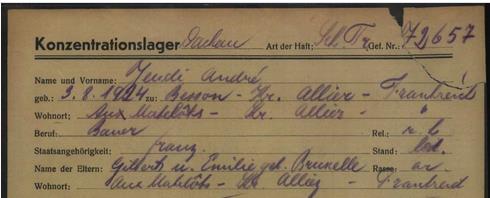 Konzentrationslager Dachau Art der Haft: Sch. Fr. Gef. Nr.: 72657
Name und Vorname: Jendi André
geb.: 3.8.1924 zu: Besson - Kr. Allier - Frankreich
Wohnort: Aux Matelots - Kr. Allier - "
Beruf: Bauer Rel.: r.k.
Staatsangehörigkeit: franz. Stand: led.
Name der Eltern: Gilbert u. Emilie geb. Bruxelle Rasse: ar.
Wohnort: Aux Matelots - Kr. Allier - Frankreich